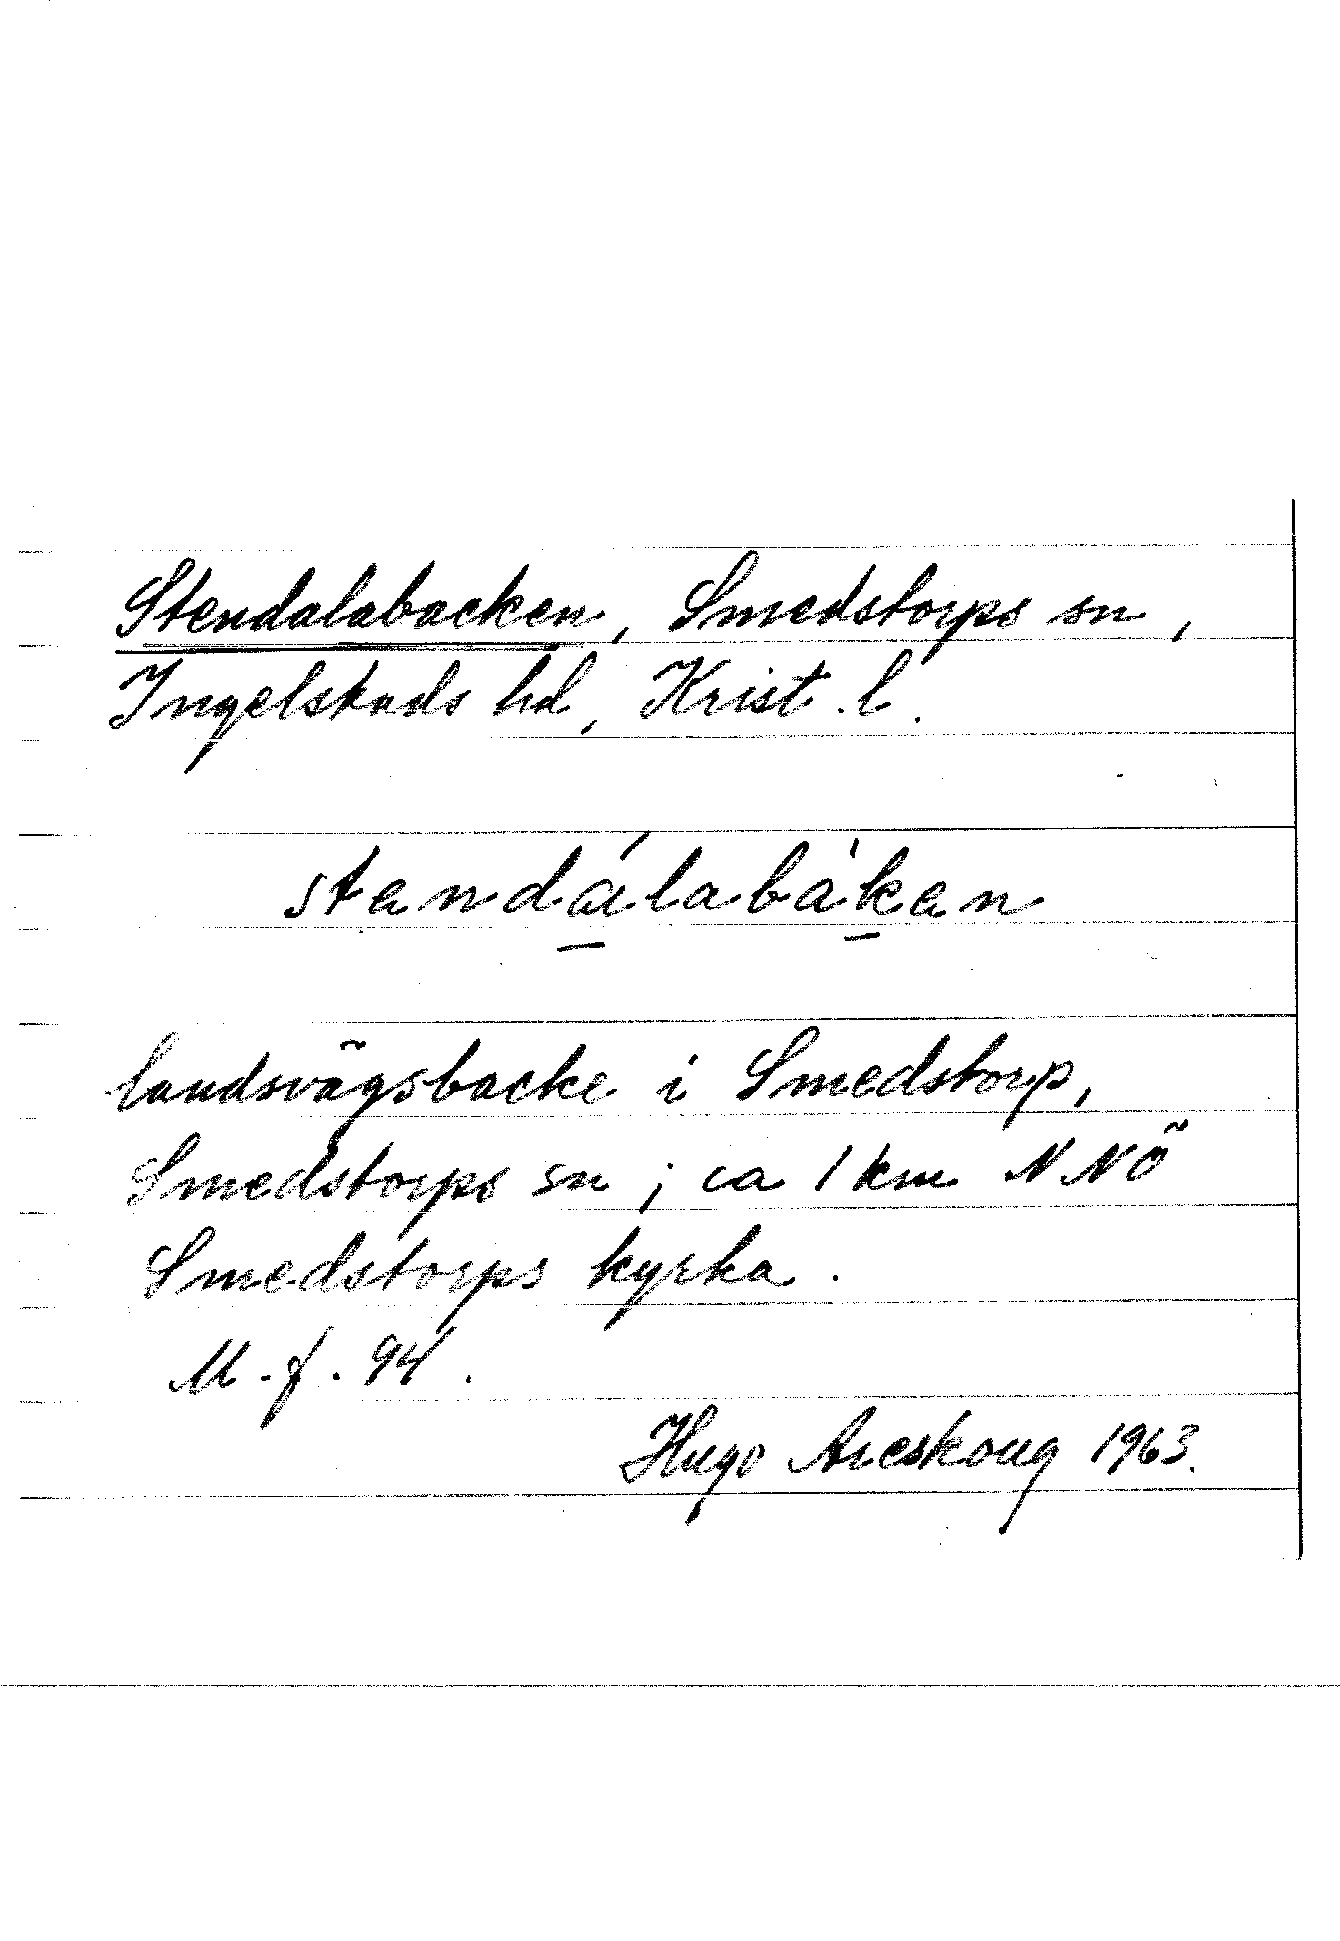 Stendalabacken, Smedstorps sn,
Ingelstads hd, Krist. l.
standálabàkan
landsvägsbacke i Smedstorp,
Smedstorps sn; ca 1 km NNÖ
Smedstorps kyrka.
M.f. 94.
Hugo Areskoug 1963.